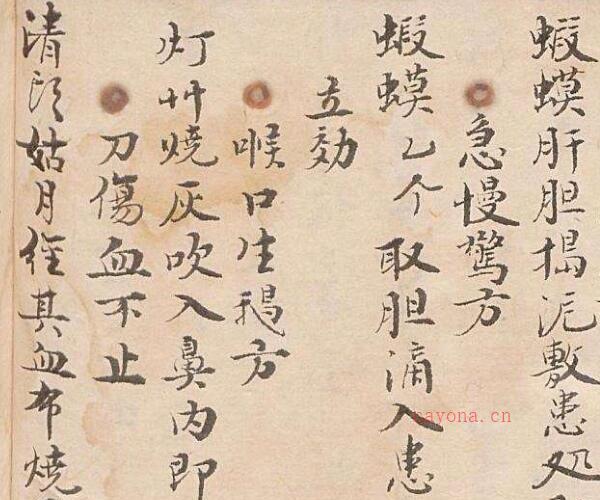 蝦蟆肝胆搗泥敷患処
急慢驚方
蝦蟆乙个取胆滴入患
立効
喉口生鵝方
灯艸燒灰吹入鼻内即
刀傷血不止
清頭姑月經其血布燒
nayona.cn